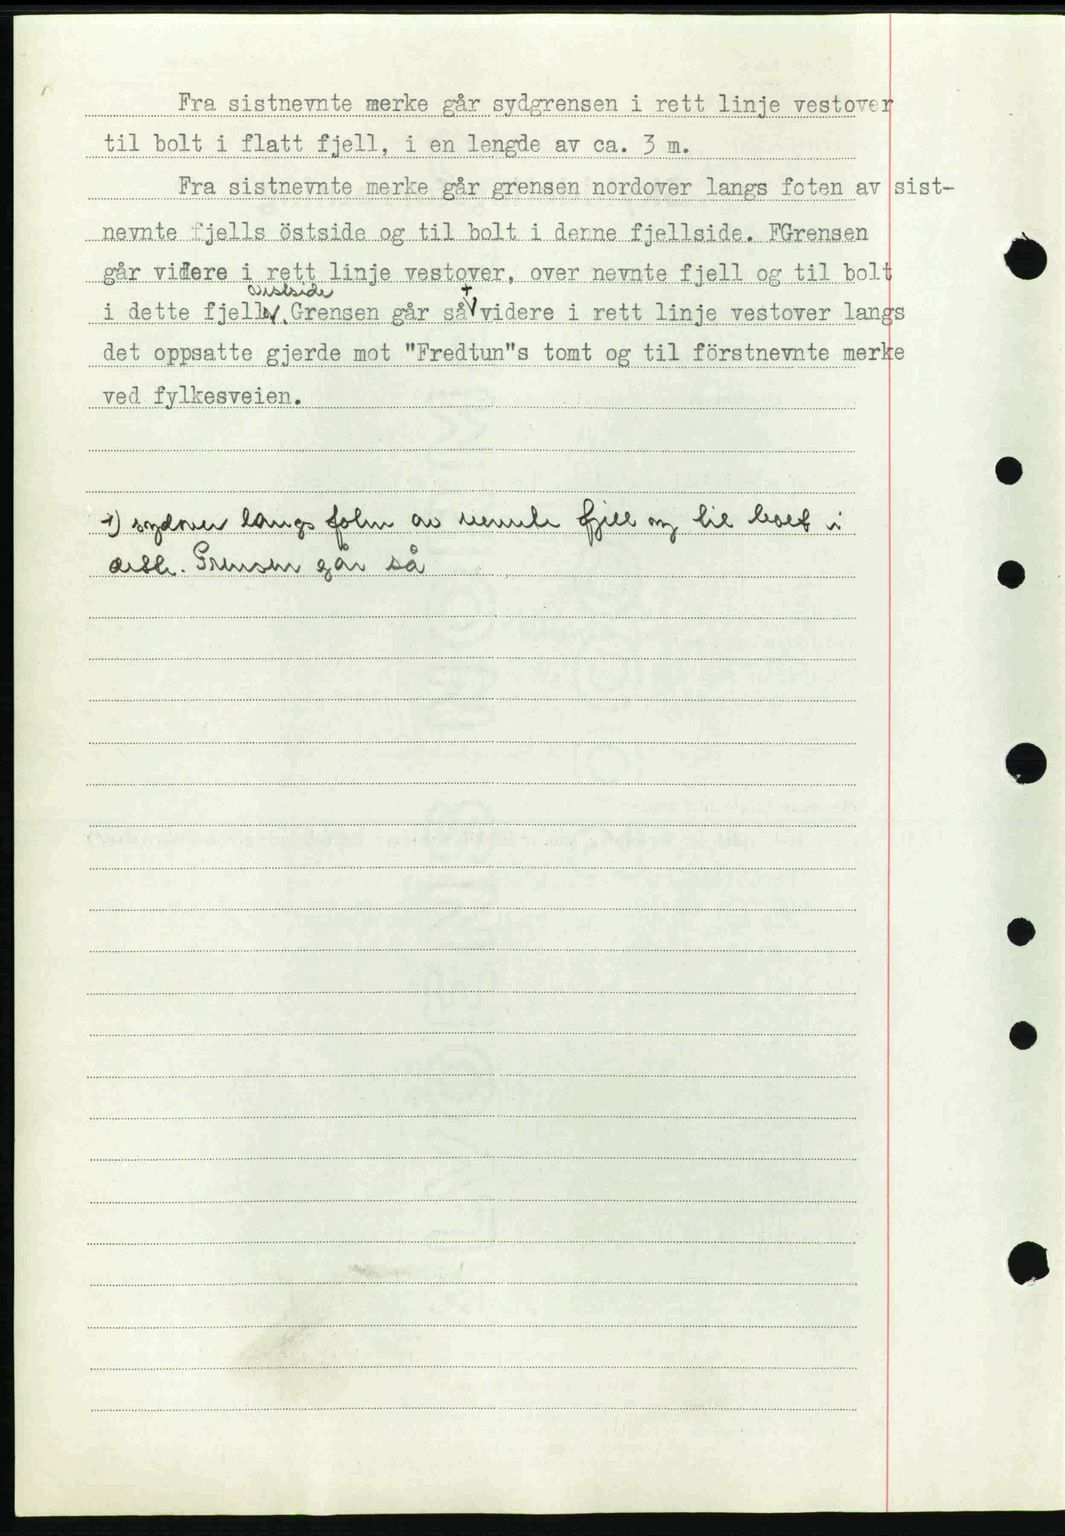 Fra sistnevnte merke går sydgrensen i rett linje vestover
til bolt i flatt fjell, i en lengde av ca. 3 m.
Fra sistnevnte merke går grensen nordover langs foten av sist-
nevnte fjells östside og til bolt i denne fjellside. FGrensen
går videre i rett linje vestover, over nevnte fjell og til bolt
vestside
i dette fjells. Grensen går så + videre i rett linje vestover langs
det oppsatte gjerde mot "Fredtun"s tomt og til förstnevnte merke
ved fylkesveien.
+) sydover langs foten av nevnte fjell og til bolt i
dette. Grensen går så